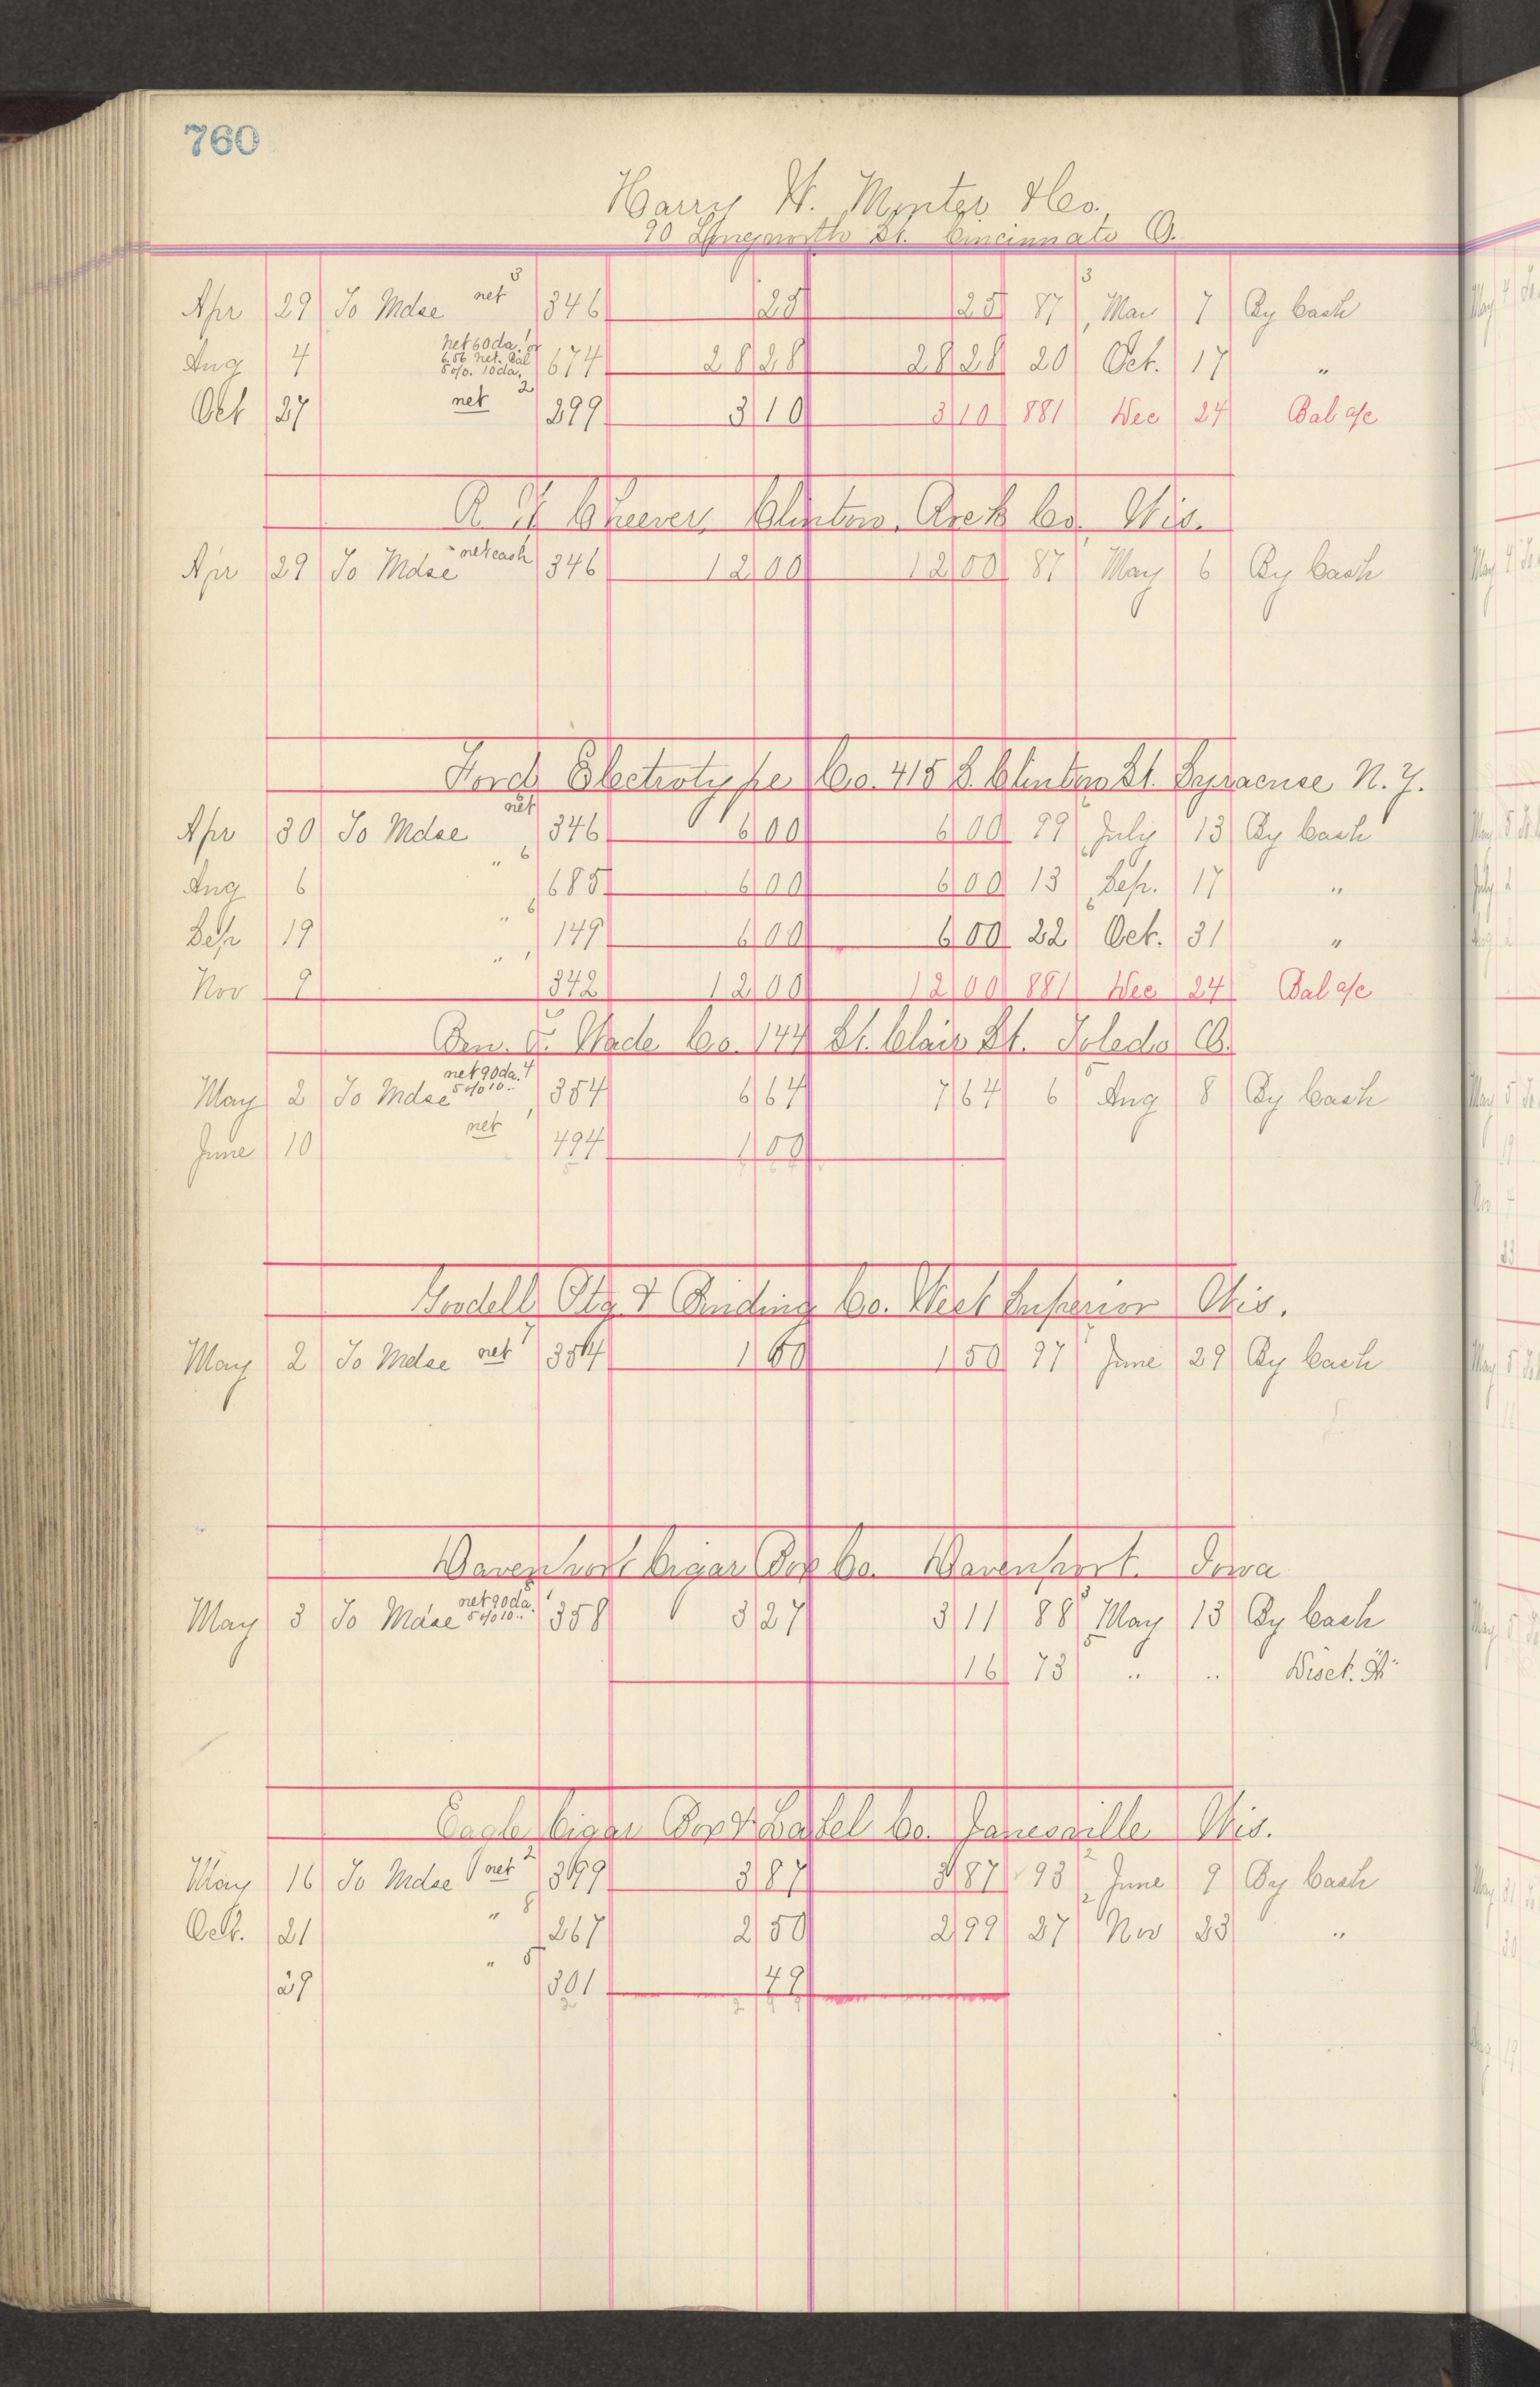 760
Harry W. Minter & Co.
90 Longworth St. Cincinnati O.
Apr 29 To Mdse net 3 346 25 25 87 3 May 7 By Cash
Aug 4 net 60 da. 1 or 6.56 net. Bal 5 o/o. 10 da. 674 28 28 28 28 20 Oct. 17 "
Oct 27 net 2 299 3 10 3 10 881 Dec 24 Bal a/c
R. H. Cheever, Clinton, Rock Co. Wis.
Apr 29 To Mdse net cash 346 12 00 12 00 87 May 6 By Cash
Force Electrotype Co. 415 S. Clinton St. Syracuse N.Y.
Apr 30 To Mdse net 346 6 00 6 00 99 July 13 By Cash
Aug 6 " 6 685 6 00 6 00 13 Sep. 17 "
Sep 19 " 6 149 6 00 6 00 22 6 Oct. 31 "
Nov 9 " 342 12 00 12 00 881 Dec 24 Bal a/c
Ben. F. Wade Co. 144 St. Clair St. Toledo O.
May 2 To Mdse net 90 da. 4 5 o/o 10 " 354 6 64 7 64 6 5 Aug 8 By Cash
June 10 net 1 494 1 00
Goodell Ptg & Binding Co. West Superior Wis.
May 2 To Mdse net 7 354 1 50 1 50 97 June 29 By Cash
Davenport Cigar Box Co. Davenport. Iowa
May 3 To Mdse net 90 da. 1 5 o/o 10 " 358 3 27 3 11 88 3 May 13 By Cash
16 73 5 " " Disct. A
Eagle Cigar Box & Label Co. Janesville Wis.
May 16 To Mdse net 2 399 3 87 3 87 93 2 June 9 By Cash
Oct. 21 " 8 267 2 50 2 99 27 2 Nov 23 "
29 " 5 301 49